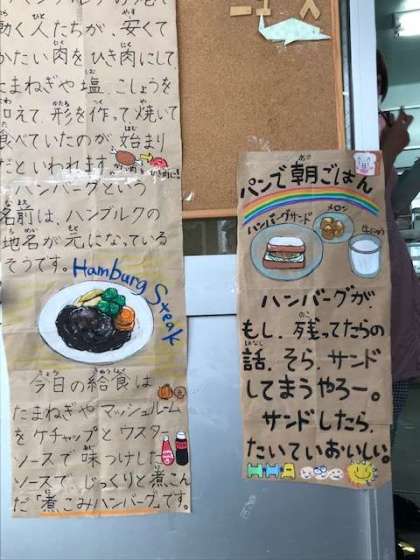 動く人たちが、安くて
かたい肉をひき肉にして
たまねぎや塩、こしょうを
加えて、形を作って焼いて
食べていたのが始まり
だといわれます。
ハンバーグという
名前は、ハンブルクの
地名が元になっている
そうです。
Hamburg Steak
今日の給食は
たまねぎやマッシュルーム
をケチャップとウスター
ソースで味つけした
ソースで、じっくりと煮こん
だ「煮こみハンバーグ」です。
パンで朝ごはん
ハンバーグサンド
メロン
ぎゅうにゅう
ハンバーグが
もし、残ってたらの
話、そら、サンド
してまうやろー。
サンドしたら、
たいていおいしい。